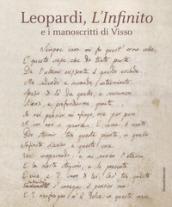 Leopardi, L'Infinito
e i manoscritti di Visso
Sempre caro mi fu quest'ermo colle,
E questa siepe che da tanta parte
De l'ultimo orizzonte il guardo esclude.
Ma sedendo e mirando, interminato
Spazio di là da quella, e sovrumani
Silenzi, e profondissima quiete
Io nel pensier mi fingo, ove per poco
Il cor non si spaura. E come il vento
Odo stormir tra queste piante, io quello
Infinito silenzio a questa voce
Vo comparando: e mi sovvien l'eterno,
E le morte stagioni, e la presente
E viva, e 'l suon di lei. Così tra questa
s'annega il pensier mio:
E 'l naufragar m'è dolce in questo mare.